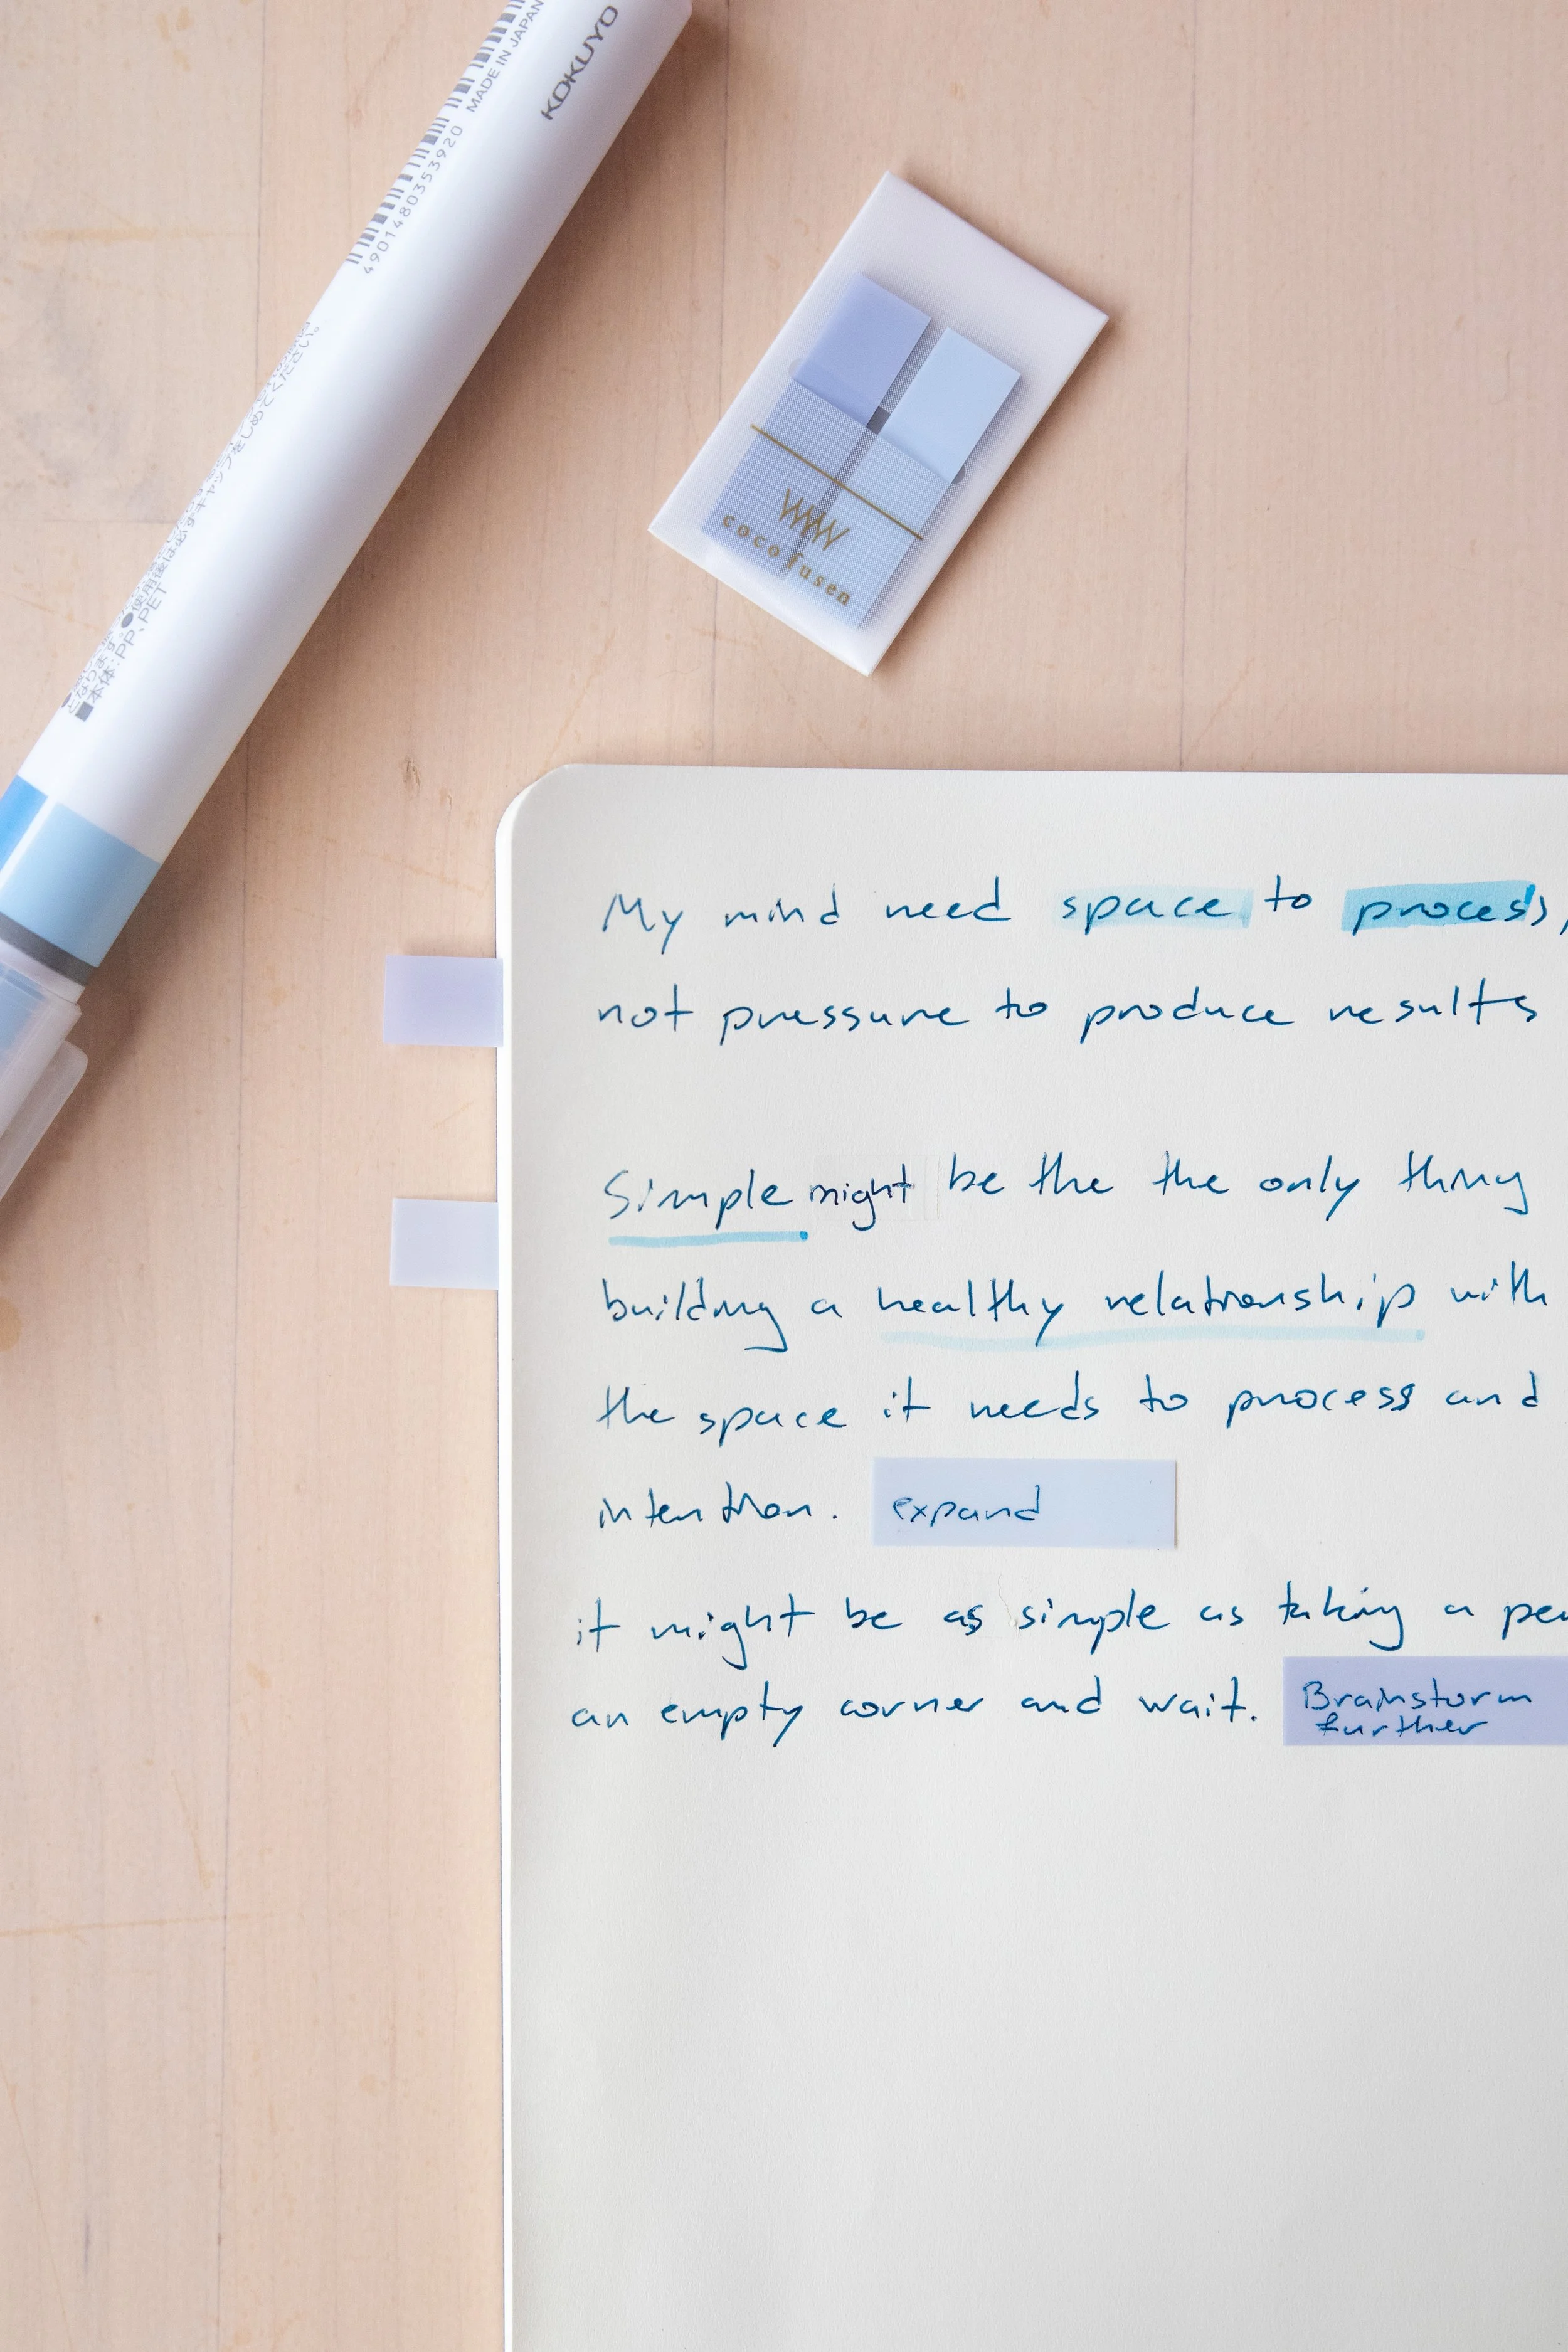 KOKUYO
MADE IN JAPAN
4901480353920
本体:PP、PET
coco fusen
My mind need space to process,
not pressure to produce results
Simple might be the the only thing
building a healthy relationship with
the space it needs to process and
intention. expand
it might be as simple as taking a
an empty corner and wait. Brainstorm
further